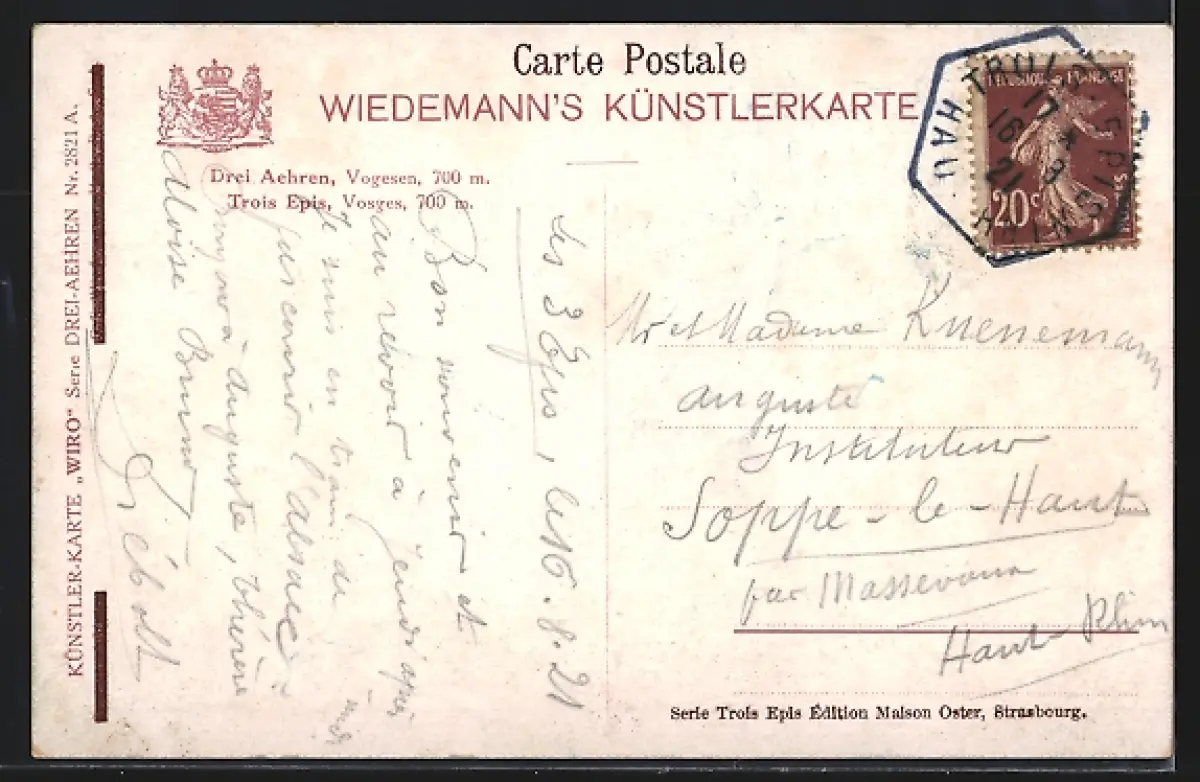 Carte Postale
WIEDEMANN'S KÜNSTLERKARTE
Drei Aehren, Vogesen, 700 m.
Trois Epis, Vosges, 700 m.
KÜNSTLER-KARTE „WIRO" Serie DREI-AEHREN Nr. 2821 A.
REPUBLIQUE FRANÇAISE
20c
TROIS EPIS
17 *
16 8
21
HAUT RHIN
les 3 Epis, le 16. 8. 21
Bon souvenir et
au revoir à jeudi
Je suis en train de
l'alsace
à Auguste, thérèse
Aloise Bruno
Mr et Madame Kuenemann
Auguste
Instituteur
Soppe-le-Haut
par Massevaux
Haut-Rhin
Serie Trois Epis Édition Maison Oster, Strasbourg.